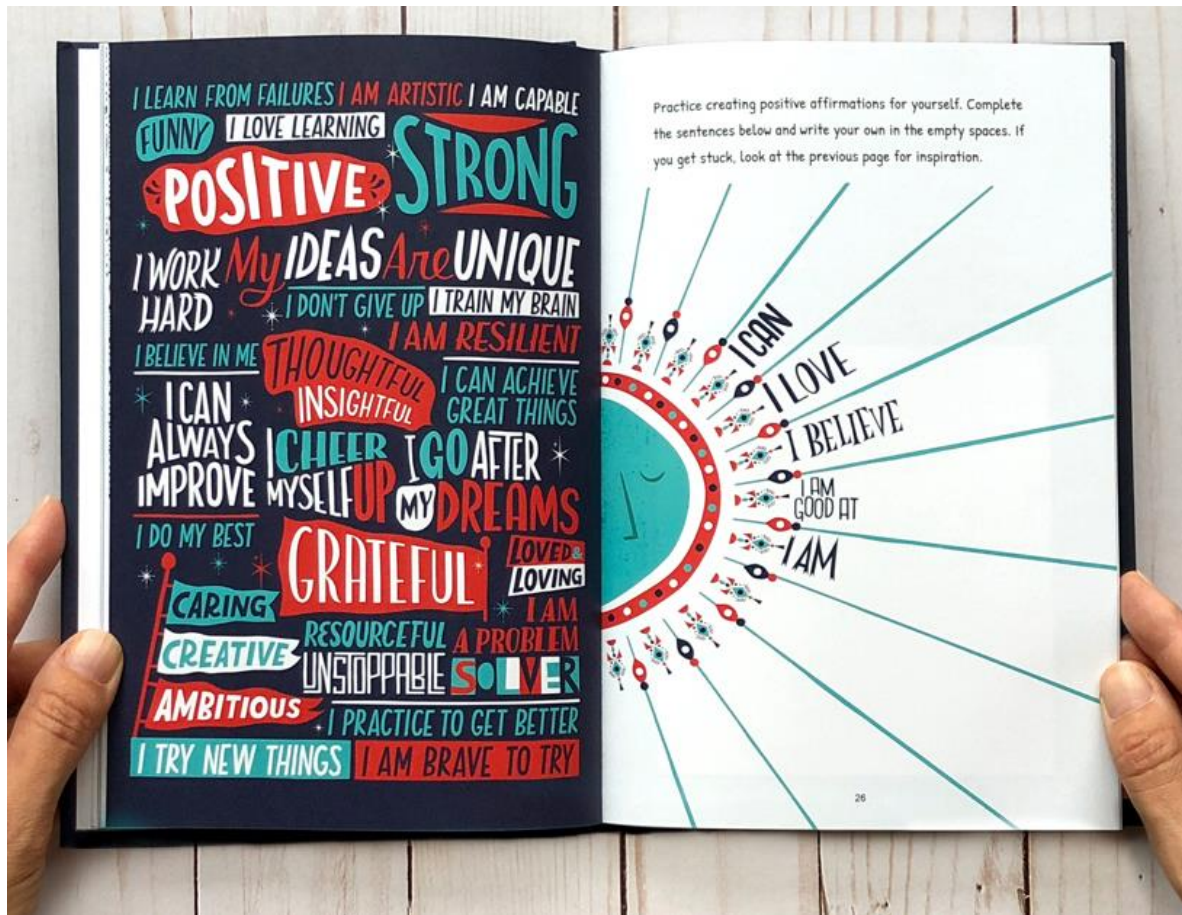 I LEARN FROM FAILURES I AM ARTISTIC I AM CAPABLE
FUNNY I LOVE LEARNING STRONG
POSITIVE
I WORK HARD
My IDEAS Are UNIQUE
I DON'T GIVE UP I TRAIN MY BRAIN
I AM RESILIENT
I BELIEVE IN ME
THOUGHTFUL
INSIGHTFUL
I CAN ACHIEVE
GREAT THINGS
I CAN
ALWAYS
IMPROVE
I CHEER
MYSELF UP
I GO AFTER
MY DREAMS
I DO MY BEST
GRATEFUL
LOVED &
LOVING
CARING
CREATIVE
AMBITIOUS
RESOURCEFUL
UNSTOPPABLE
I AM
A PROBLEM
SOLVER
I PRACTICE TO GET BETTER
I TRY NEW THINGS I AM BRAVE TO TRY
Practice creating positive affirmations for yourself. Complete
the sentences below and write your own in the empty spaces. If
you get stuck, look at the previous page for inspiration.
I CAN
I LOVE
I BELIEVE
I AM
GOOD AT
I AM
26